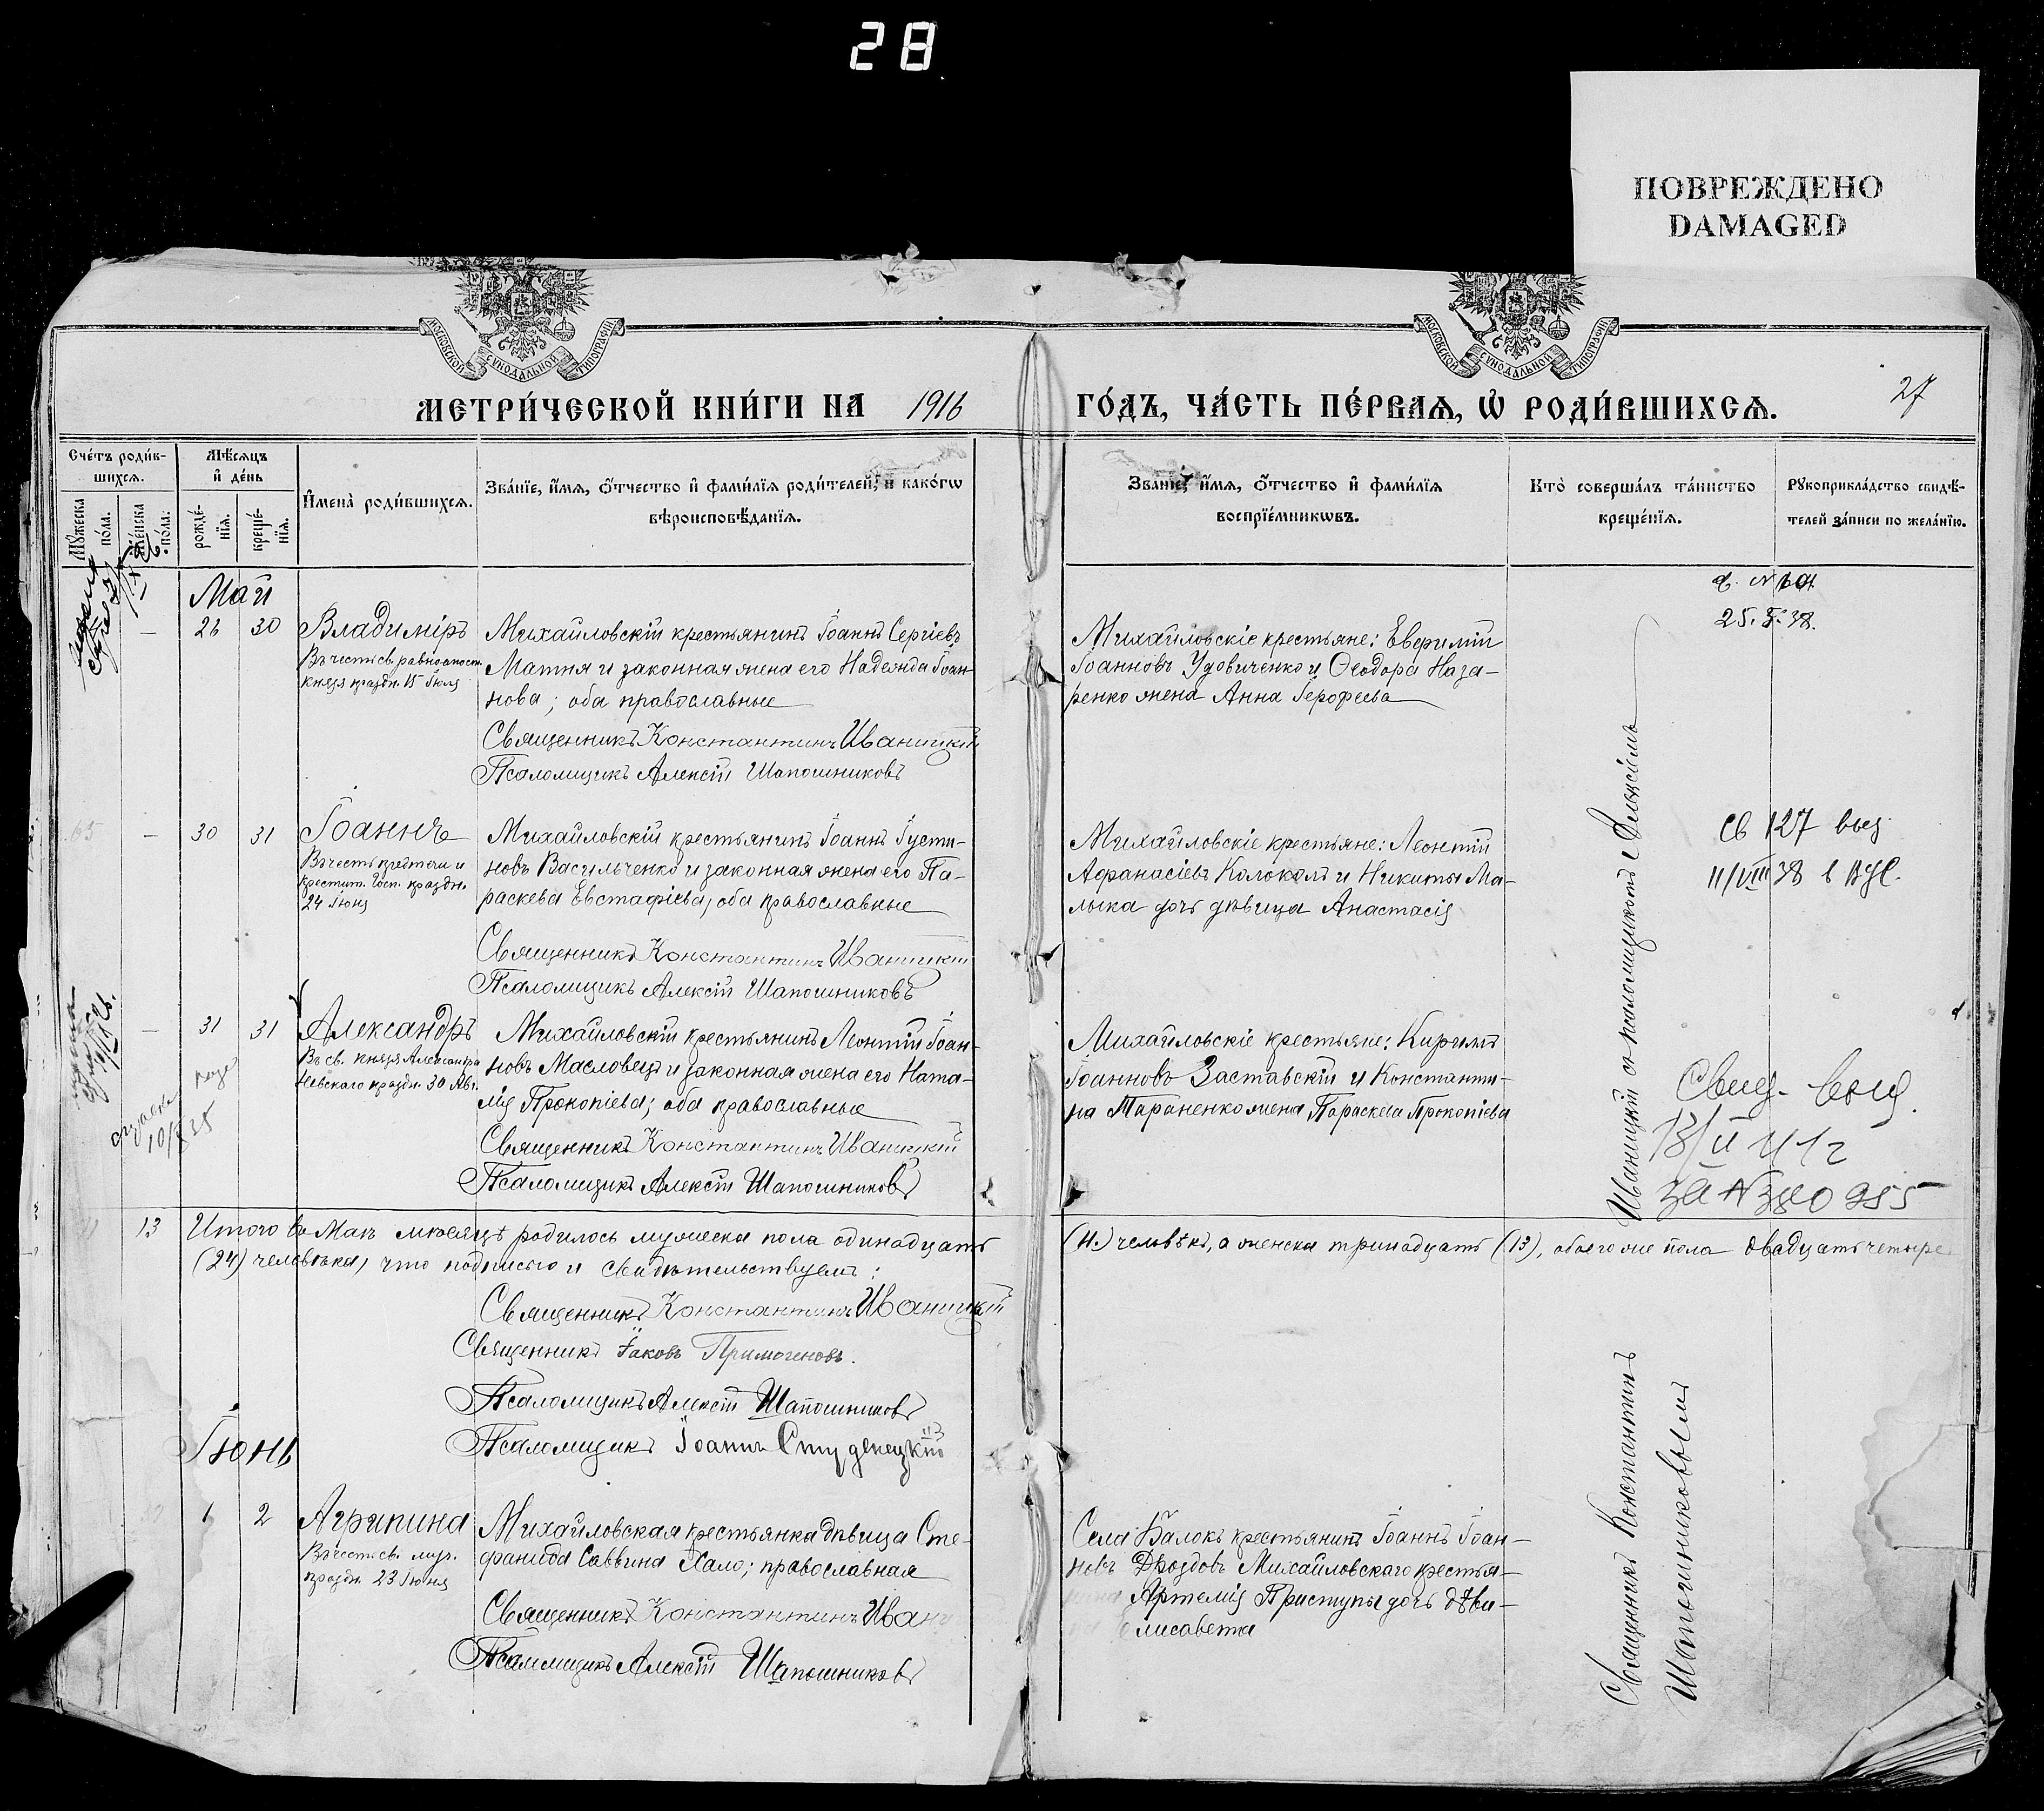 28
ПОВРЕЖДЕНО
DAMAGED
МОСКОВСКОЙ СУНОДАЛЬНОЙ ТИПОГРАФІИ
МОСКОВСКОЙ СУНОДАЛЬНОЙ ТИПОГРАФІИ
МЕТРИ́ЧЕСКОЙ КНИ́ГИ НА 1916 ГО́ДЪ, ЧА́СТЬ ПЕ́РВАѦ, Ѡ РОДИ́ВШИХСѦ.
27
Сче́тъ роди́в-
шихсѧ.
Мꙋ́жеска по́ла.
Же́нска по́ла.
Мѣ́сѧцъ
и҆ де́нь
рожде́-
нїѧ.
креще́-
нїѧ.
И҆мена̀ роди́вшихсѧ.
Зва́нїе, и҆́мѧ, ѻ҆́тчество и҆ фами́лїѧ роди́телей, и҆ како́гѡ
вѣроисповѣ́данїѧ.
Зва́нїе, и҆́мѧ, ѻ҆́тчество и҆ фами́лїѧ
воспрїе́мникѡвъ.
Кто̀ соверша́лъ та́инство
креще́нїѧ.
Рꙋкоприкла́дство свидѣ́-
телей за́писи по жела́нїю.
Май
— 26 30 Владиміръ
Въ честь св. равноапост.
князя праздн. 15 Іюля
Михайловскій крестьянинъ Іоаннъ Сергіевъ
Матня и законная жена его Надежда Іоан-
нова; оба православные
Священникъ Константинъ Иваницкій
Псаломщикъ Алексій Шапошниковъ
Михайловскіе крестьяне:
Іоанновъ Удовиченко и Ѳеодора Наза-
ренко жена Анна Іерофеева
25. 38.
65 — 30 31 Іоаннъ
Въ честь предтечи и
крестит. Госп. праздн.
24 Іюня
Михайловскій крестьянинъ Іоаннъ Іусти-
новъ Васильченко и законная жена его Па-
раскева Евстафіева, оба православные
Священникъ Константинъ Иваницкій
Псаломщикъ Алексій Шапошниковъ
Михайловскіе крестьяне: Леонтій
Аѳанасіевъ Колоколъ и Никиты Ма-
лыка дочь дѣвица Анастасія
св 127 выд
11/VIII 38 в
— 31 31 Александръ
Въ св. князя Александра
Невскаго праздн. 30 Авг.
Михайловскій крестьянинъ Леонтій Іоан-
новъ Масловецъ и законная жена его Ната-
лія Прокопіева; оба православные
Священникъ Константинъ Иваницкій
Псаломщикъ Алексій Шапошниковъ
Михайловскіе крестьяне: Кириллъ
Іоанновъ Заставскій и Константи-
на Тараненко жена Параскева Прокопіева
Свид- выд.
13/II 41 г
за №
13 Итого въ Маѣ мѣсяцѣ родилось мужеска пола одинадцать (11.) человѣкъ, а женска тринадцать (13), обоего же пола двадцать четыре
(24) человѣка, что подписью и свидѣтельствуемъ:
Священникъ Константинъ Иваницкій
Священникъ Іаковъ Примогеновъ.
Псаломщикъ Алексій Шапошниковъ
Псаломщикъ Іоаннъ Студенецкій
Іюнь
1 2 Агрипина
Въ честь св. муч.
праздн. 23 Іюня
Михайловская крестьянка дѣвица Сте-
фанида Саввина Хало; православная
Священникъ Константинъ Иван
Псаломщикъ Алексій Шапошниковъ
Села Балокъ крестьянинъ Іоаннъ Іоан-
новъ Дроздовъ Михайловскаго крестья-
Артемія Приступы дочь дѣви-
Елисавета
Священникъ Константинъ Иваницкій съ псаломщикомъ Алексіемъ
Шапошниковымъ